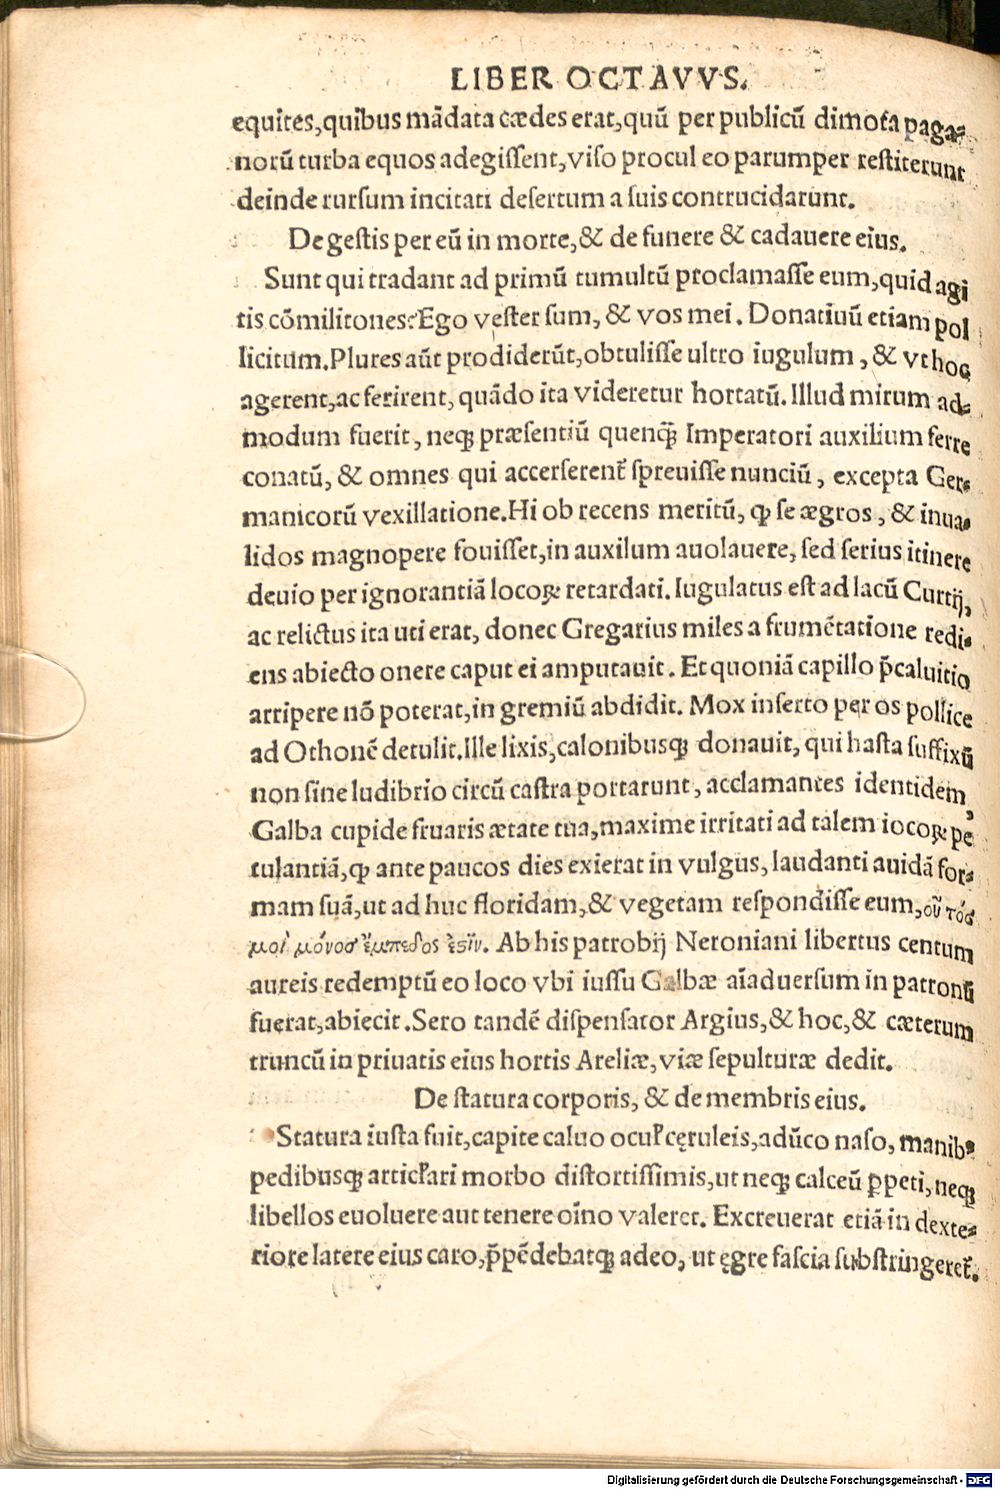 LIBER OCTAVVS.
equites,quibus mãdata cædes erat,quũ per publicũ dimota paga-
norũ turba equos adegissent,viso procul eo parumper restiterunt
deinde rursum incitati desertum a suis contrucidarunt.
De gestis per eũ in morte,& de funere & cadauere eius.
Sunt qui tradant ad primũ tumultũ proclamasse eum,quid agi
tis cõmilitones?Ego vester sum, & vos mei. Donatiuũ etiam pol
licitum.Plures aũt prodiderũt,obtulisse ultro iugulum, & vt hoc
agerent,ac ferirent, quãdo ita videretur hortatũ. Illud mirum ad-
modum fuerit, neqꝫ præsentiũ quenqꝫ̃ Imperatori auxilium ferre
conatũ, & omnes qui accerserent᷑ spreuisse nunciũ, excepta Ger-
manicorũ vexillatione.Hi ob recens meritũ, ꝙ se ægros, & inua-
lidos magnopere fouisset,in auxilum auolauere, sed serius itinere
deuio per ignorantiã locoꝝ retardati. Iugulatus est ad lacũ Curtij,
ac relictus ita uti erat, donec Gregarius miles a frumẽtatione redi-
ens abiecto onere caput ei amputauit. Et quoniã capillo p̃caluitio
arripere nõ poterat,in gremiũ abdidit. Mox inserto per os pollice
ad Othonẽ detulit.Ille lixis,calonibusqꝫ donauit, qui hasta suffixũ
non sine ludibrio circũ castra portarunt, acclamantes identidem,
Galba cupide fruaris ætate tua,maxime irritati ad talem iocoꝝ pe
tulantiã,ꝙ ante paucos dies exierat in vulgus, laudanti auidã for-
mam suã,ut ad huc floridam,& vegetam respondisse eum,οὔ τόσ
μοὶ μόνοσ ἔμπεδος ἐϛῒν. Ab his patrobij Neroniani libertus centum
aureis redemptũ eo loco vbi iussu Galbæ aĩaduersum in patronũ
fuerat,abiecit.Sero tandẽ dispensator Argius,& hoc,& cæterum
truncũ in priuatis eius hortis Areliæ,viæ sepulturæ dedit.
De statura corporis, & de membris eius.
Statura iusta fuit,capite caluo oculꝭ cęruleis,adũco naso, manibꝰ
pedibusqꝫ articľari morbo distortissimis,ut neqꝫ calceũ ꝑpeti,neqꝫ
libellos euoluere aut tenere oĩno valeret. Excreuerat etiã in dexte-
riore latere eius caro,p̃pẽdebatqꝫ adeo, ut ęgre fascia substringeret᷑.
Digitalisierung gefördert durch die Deutsche Forschungsgemeinschaft - DFG